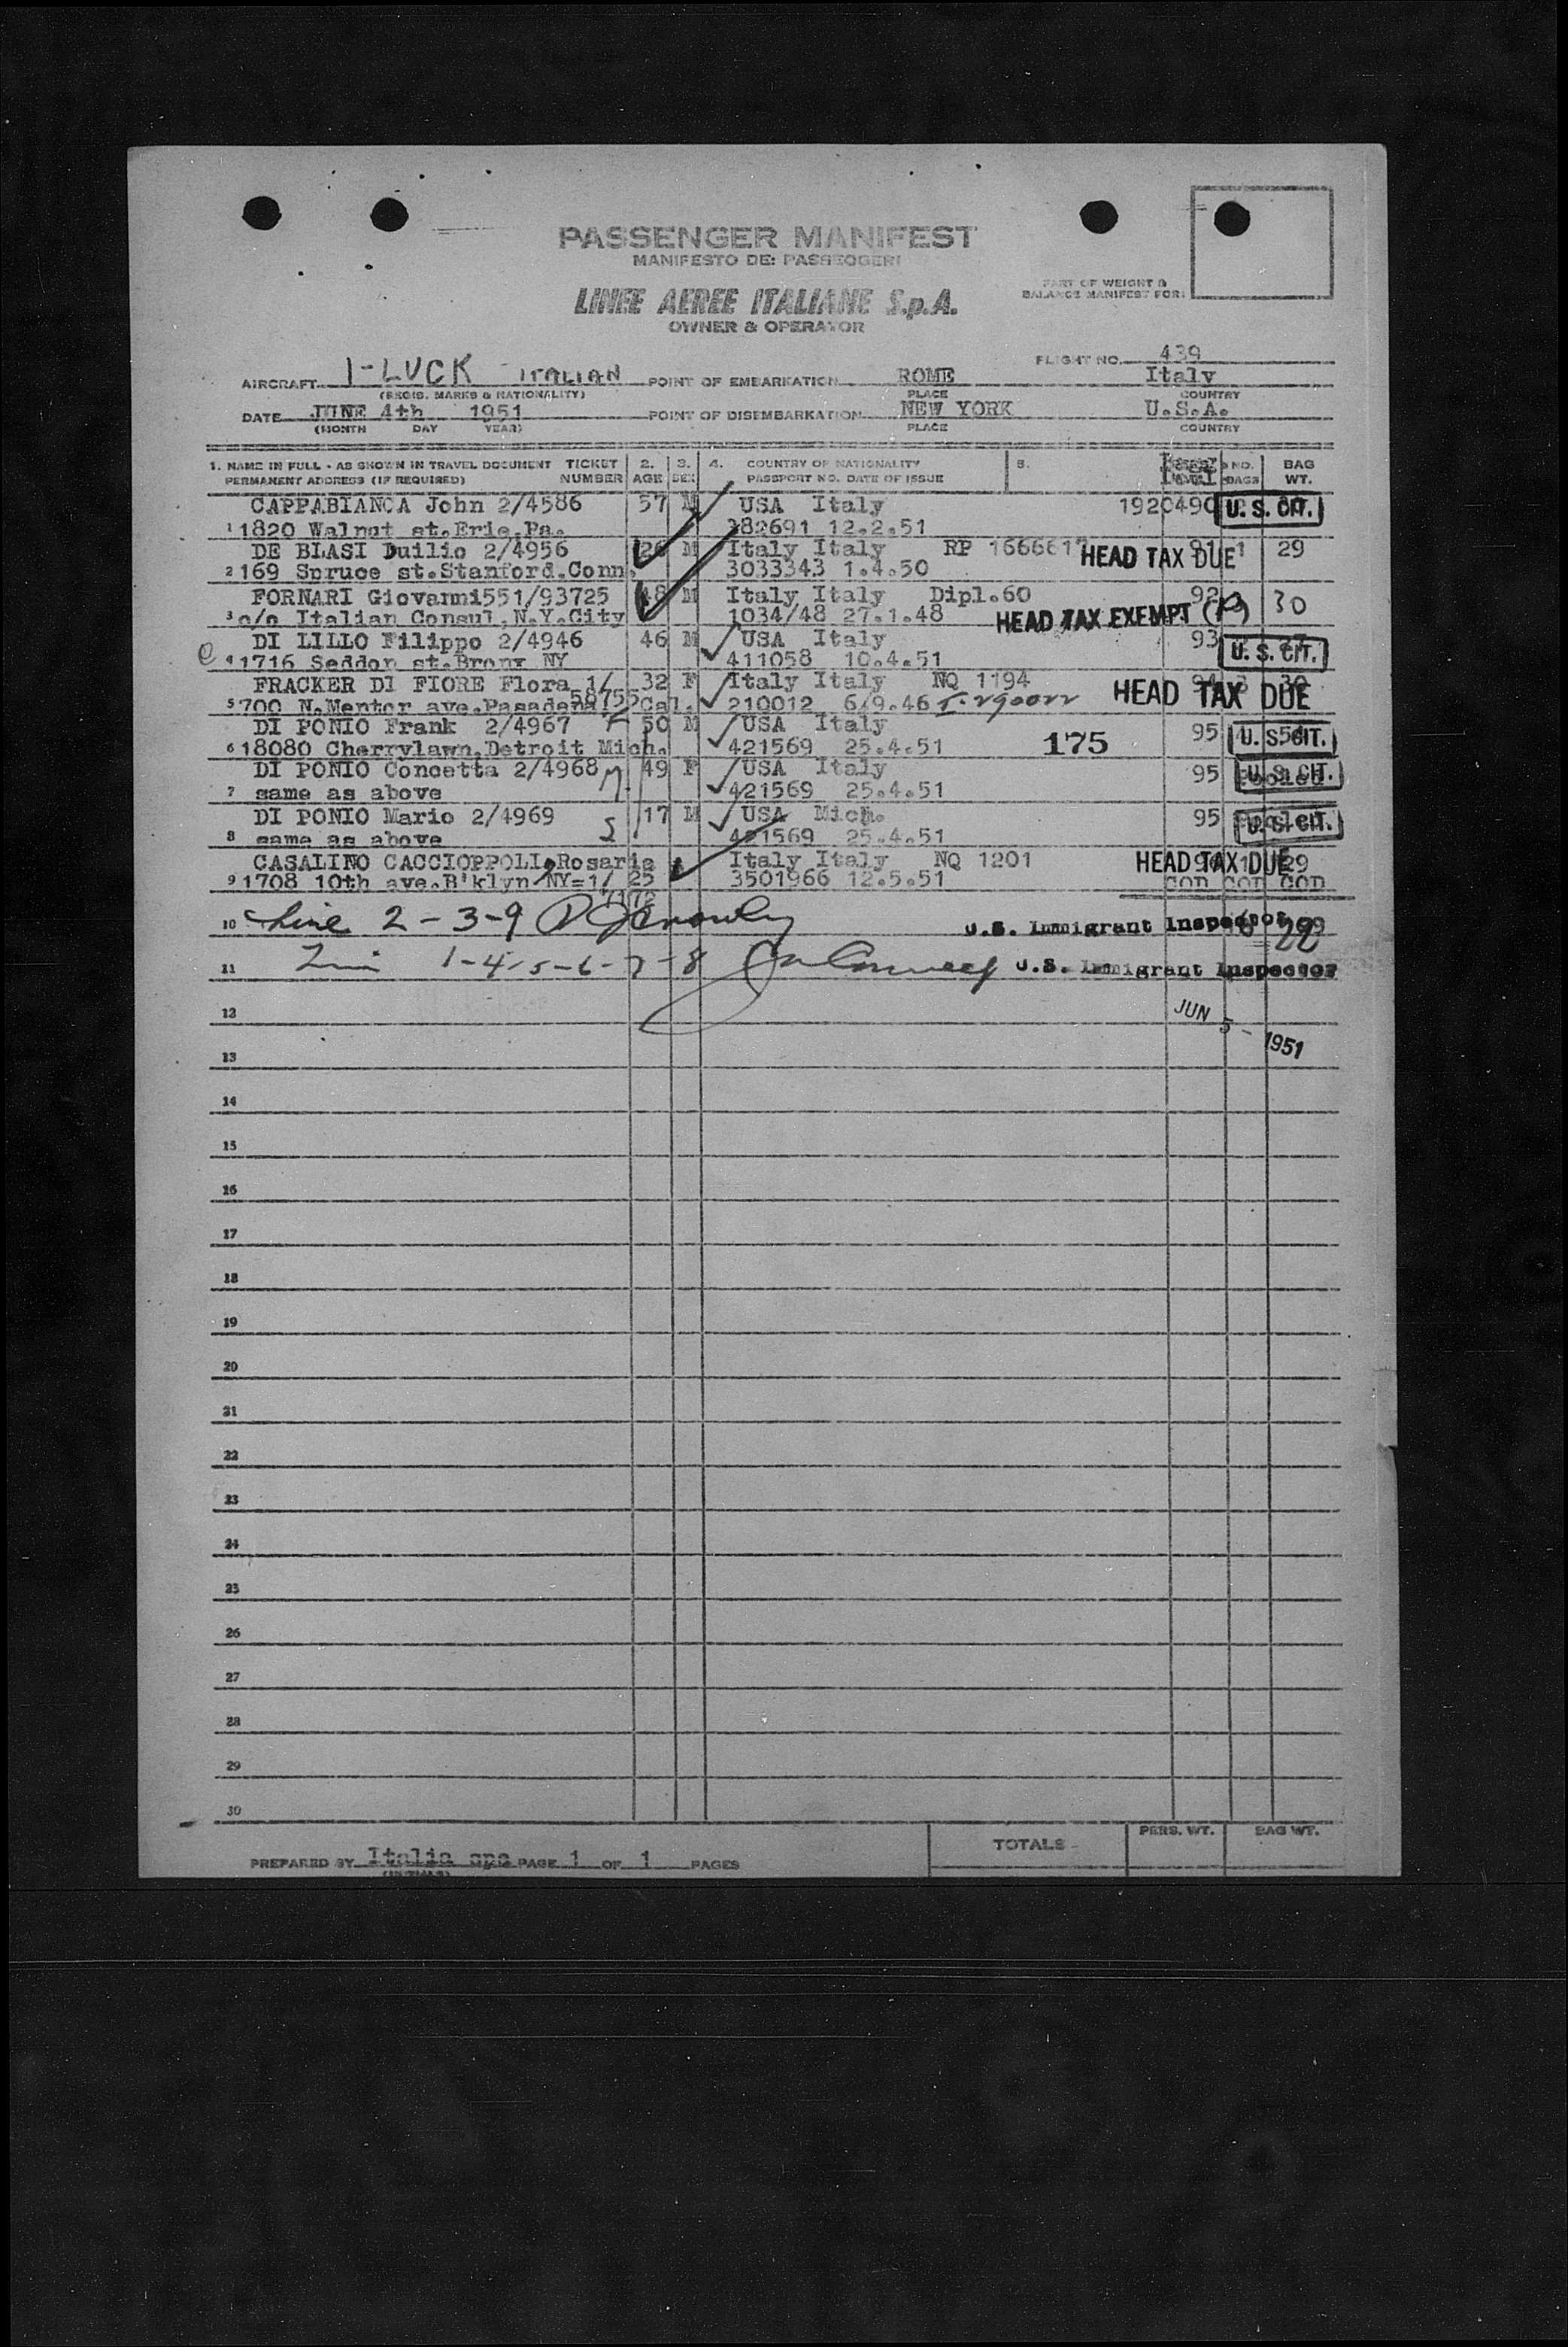 PASSENGER MANIFEST
MANIFESTO DEI PASSEGGERI
LINEE AEREE ITALIANE S.p.A.
OWNER & OPERATOR
PART OF WEIGHT &
BALANCE MANIFEST FOR:
FLIGHT NO. 439
AIRCRAFT I-LUCK ITALIAN POINT OF EMBARKATION ROME Italy
(REGIS. MARKS & NATIONALITY) PLACE COUNTRY
DATE JUNE 4th 1951 POINT OF DISEMBARKATION NEW YORK U.S.A.
(MONTH DAY YEAR) PLACE COUNTRY
1. NAME IN FULL - AS SHOWN IN TRAVEL DOCUMENT TICKET 2. 3. 4. COUNTRY OF NATIONALITY 5. NO. BAG
PERMANENT ADDRESS (IF REQUIRED) NUMBER AGE SEX PASSPORT NO. DATE OF ISSUE BAGS WT.
CAPPABIANCA John 2/4586 57 M USA Italy 1920490 U. S. CIT.
1 1820 Walnut st.Erie,Pa. 382691 12.2.51
DE BLASI Duilio 2/4956 26 M Italy Italy RP 1666617 HEAD TAX DUE 91 1 29
2 169 Spruce st.Stanford.Conn. 3033343 1.4.50
FORNARI Giovanni551/93725 48 M Italy Italy Dipl.60 92 30
3 c/o Italian Consul,N.Y.City 1034/48 27.1.48 HEAD TAX EXEMPT
DI LILLO Filippo 2/4946 46 M USA Italy 93 U. S. CIT.
4 1716 Seddon st.Bronx NY 411058 10.4.51
FRACKER DI FIORE Flora 1/ 32 F Italy Italy NQ 1194 94 3 30
58755
5 700 N.Mentor ave.Pasadena Cal. 210012 6/9.46 HEAD TAX DUE
DI PONIO Frank 2/4967 50 M USA Italy 95 U. S. CIT.
6 18080 Cherrylawn,Detroit Mich. 421569 25.4.51 175
DI PONIO Concetta 2/4968 49 F USA Italy 95 U. S. CIT.
7 same as above 421569 25.4.51
DI PONIO Mario 2/4969 17 M USA Mich. 95 U. S. CIT.
8 same as above 421569 25.4.51
CASALINO CACCIOPPOLI Rosaria Italy Italy NQ 1201 HEAD TAX DUE 1 29
9 1708 10th ave.B'klyn NY=1/ 25 3501966 12.5.51
10 Line 2-3-9 U.S. Immigrant Inspector
11 1-4-5-6-7-8 U.S. Immigrant Inspector
12 JUN 5 - 1951
13
14
15
16
17
18
19
20
21
22
23
24
25
26
27
28
29
30
PREPARED BY Italia PAGE 1 OF 1 PAGES TOTALS PERS. WT. BAG WT.
(INITIALS)